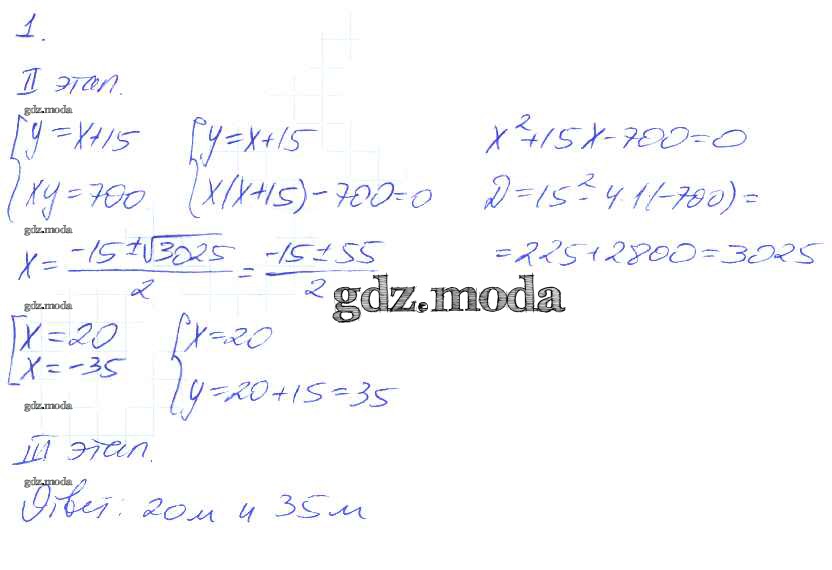 1.
II этап.
gdz.moda
y=x+15 y=x+15 x²+15x-700=0
xy=700 x(x+15)-700=0 D=15²-4·1(-700)=
gdz.moda
x=(-15±√3025)/2=(-15±55)/2 =225+2800=3025
gdz.moda
gdz.moda
x=20 x=20
x=-35
y=20+15=35
gdz.moda
III этап.
gdz.moda
Ответ: 20м и 35м